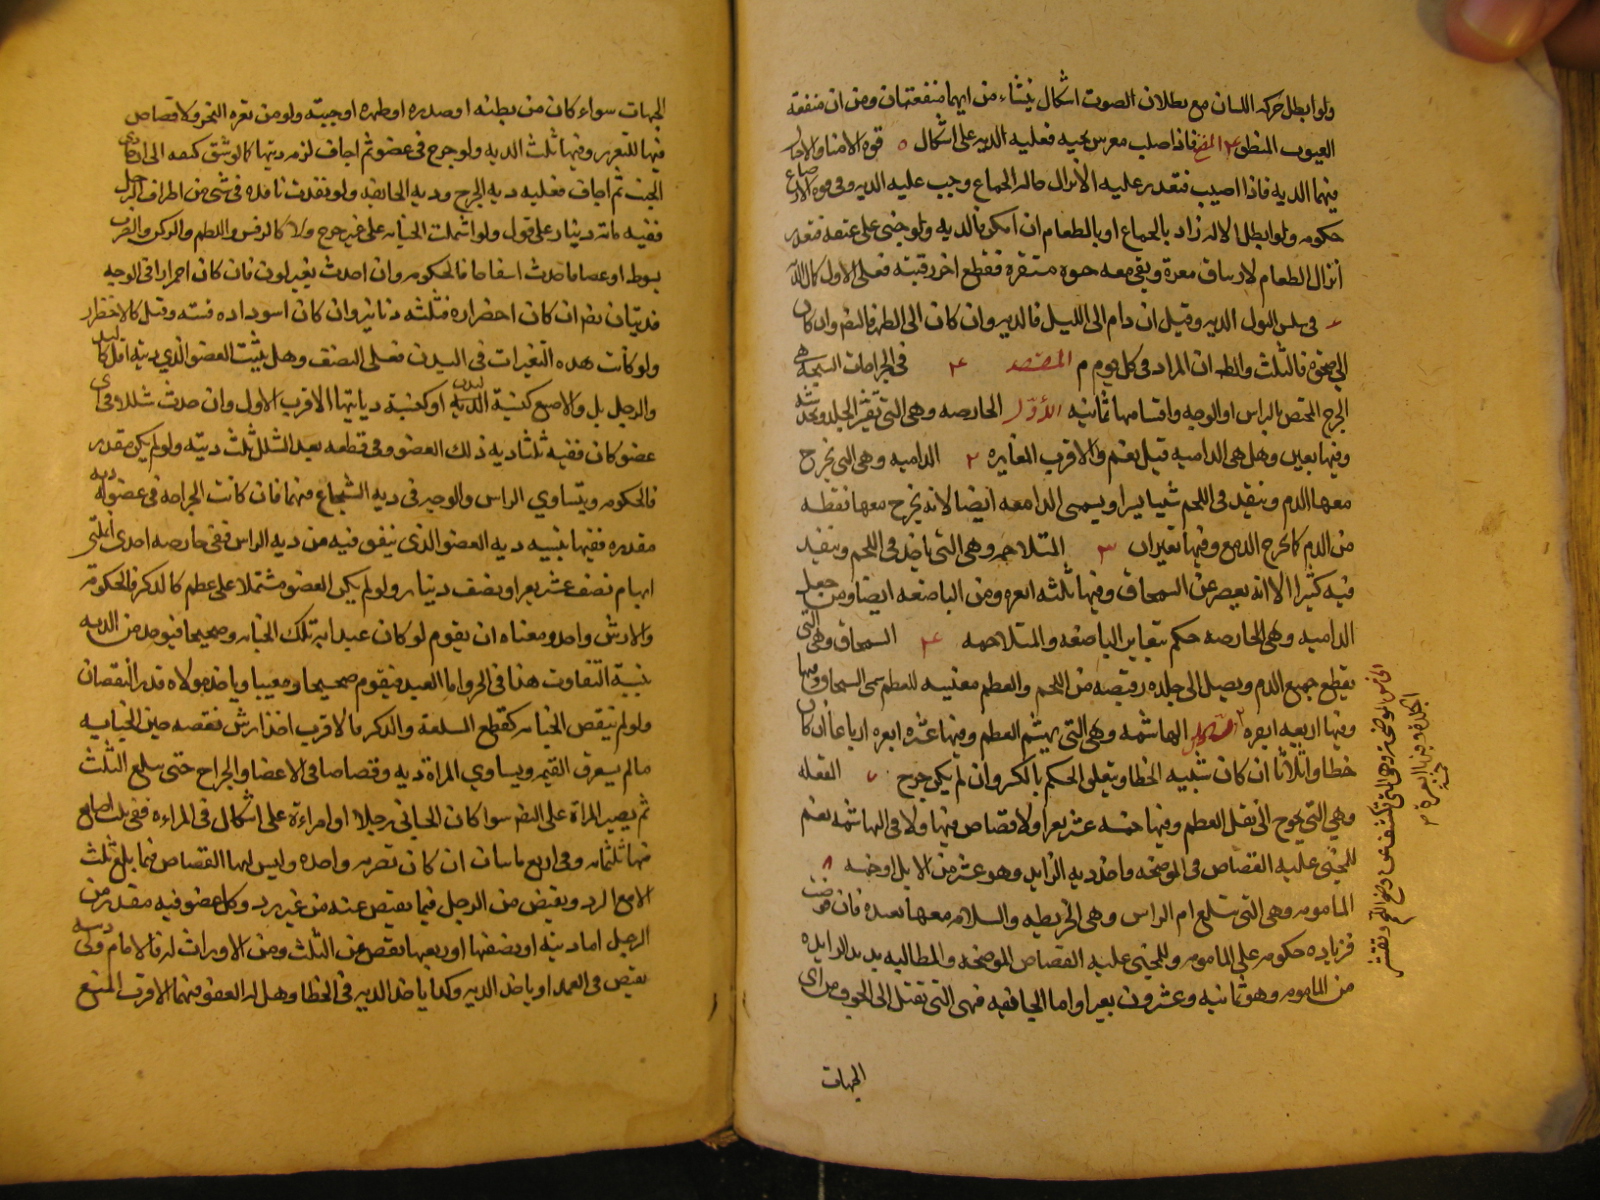 ولو ابطل حركه اللسان مع بطلان الصوت اشكال ينشاء من ايهما منفعتان ومن ان منفعة
العيوب النطق فاذا صلب فعليه الديه على اشكال ه قوه الامنا والاحبال
فيهما الديه فاذا اصيب فتعذر عليه الانزال حاله الجماع وجب عليه الديه وفي قوه الارضاع
حكومه ولو ابطل الالتذاذ بالجماع او بالطعام ان امكن فالديه ولو جنى على عنقه فتعذر
انزال الطعام لارتتاق وبقى معه حيوه مستقره فقطع اخر رقبته فعلى الاول كمال الديه
في سلس البول الديه وقيل ان دام الى الليل فالديه وان كان الى الظهر فالنصف وان كان
الى ضحوه فالثلث والظاهر ان المراد في كل يوم المقصد ۴ في الجراحات الشجه هي
الجرح المختص بالراس او الوجه واقسامها ثمانيه الاول الحارصه وهي التي تقشر الجلد وتخدشه
وفيها بعير وهل هي الداميه قيل نعم والاقرب المغايره ۲ الداميه وهي التي يخرج
معها الدم وينفذ في اللحم شيئا يسيرا ويسمى الدامعه ايضا لانه يخرج معها نقطه
من الدم كما يخرج الدمع وفيها بعيران ۳ المتلاحمه وهي التي ياخذ في اللحم وينفذ
فيه كثيرا الا انه يقصر عن السمحاق وفيها ثلثه ابعره وهي الباضعه ايضا ومن جعل
الداميه وهي الحارصه حكم بتغاير الباضعه والمتلاحمه ۴ السمحاق وهي التي
يقطع جميع اللحم ويصل الى جلده رقيقه بين اللحم والعظم مغشيه للعظم تسمى السمحاق
وفيها اربعه ابعره الهاشمه وهي التي يهشم العظم وفيها عشره ابعره ارباعا ان كان
خطا واثلاثا ان كان شبيه الخطا ويتعلق الحكم بالكسر وان لم يكن جرح ۷ المنقله
وهي التي يحوج الى نقل العظم وفيها خمسه عشر بعيرا ولا قصاص فيها ولا في الهاشمه نعم
للمجني عليه القصاص في الموضحه واخذ ديه الزايد وهو عشر من الابل او خمسه ۸
المامومه وهي التي تبلغ ام الراس وهي الخريطه والسلامه معها بعيده فان فرضت
فزياده حكومه على المامومه وللمجني عليه القصاص الموضحه والمطالبه بديه الزايده
من المامومه وهو ثمانيه وعشرون بعيرا واما الجائفه فهي التي تصل الى الجوف من اي
الجهات
الخامس الموضحه وهي التي تكشف عن وضح العظم وتقشر
الجلده وفيها ابعره
خمسه
الجهات سواء كان من بطنه او صدره او ظهره او جنبيه ولو من ثغره النحر ولا قصاص
فيها للتغرير وفيها ثلث الديه ولو جرح في عضو ثم اجاف لزمه ديتهما كما لو شق كتفه الى ان حاذى
الجنب ثم اجاف فعليه ديه الجرح وديه الجائفه ولو نفذت نافذه في شيء من اطراف الرجل
ففيه مائه دينار على قول ولو اشتملت الجنايه على غير جرح ولا كالرفس واللطم والوكز والضرب
بسوط او عصا فاحدث انتفاخا فالحكومه وان احدث تغير لون فان كان احمرارا في الوجه
فدينار ونصف وان كان اخضرارا فثلثه دنانير وان كان اسودادا فسته وقيل كالاخضرار
ولو كانت هذه التغيرات في البدن فعلى النصف وهل يثبت العضو الذي ديته اقل كاليد
والرجل بل والاصبع كنسبة البدن او كنسبة دياتها الاقرب الاول وان حدث شللا في اي
عضو كان ففيه ثلثا ديه ذلك العضو وفي قطعه بعد الشلل ثلث ديته ولو لم يكن مقدر
فالحكومه ويتساوي الراس والوجه في ديه الشجاج فيهما فان كانت الجراحه في عضو له ديه
مقدره ففيها بنسبه ديه العضو الذي يتفق فيه من ديه الراس ففي حارصه احدى انملتي
ابهام نصف عشر بعير او نصف دينار ولو لم يكن العضو مشتملا على عظم كالذكر فالحكومه
والارش واحد ومعناه ان يقوم لو كان عبدا بتلك الجنايه وصحيحا فيوخذ من الديه
بنسبة التفاوت هذا في الحر واما العبد فيقوم صحيحا ومعيبا وياخذ مولاه قدر النقصان
ولو لم ينقص الجنايه كقطع السلعه والذكر فالاقرب اخذ ارش نقصه حين الجنايه
مالم يستغرق القيمه ويساوي المراة ديه وقصاصا في الاعضا والجراح حتى يبلغ الثلث
ثم يصير المراة على النصف سوا كان الجاني رجلا او امراءة على اشكال في المراءه ففي ثلث اصابع
منها ثلثمائه وفي اربع مائتان ان كان بضربه واحده وليس لها القصاص فيما بلغ ثلث
الا مع الرد ويقتص من الرجل فيما يقتص عنه من غير رد وكل عضو فيه مقدر من
الرجل اما ديته او نصفها او ربعها ينقص عن الثلث ومن لا وارث له فالامام ولي دمه
يقتص في العمد او ياخذ الديه وكذا ياخذ الديه في الخطا وهل له العفو فيهما الاقرب المنع